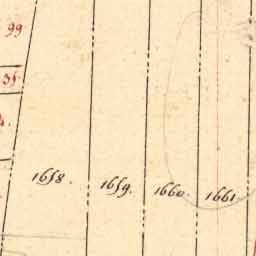 99
1658.
1659.
1660.
1661.